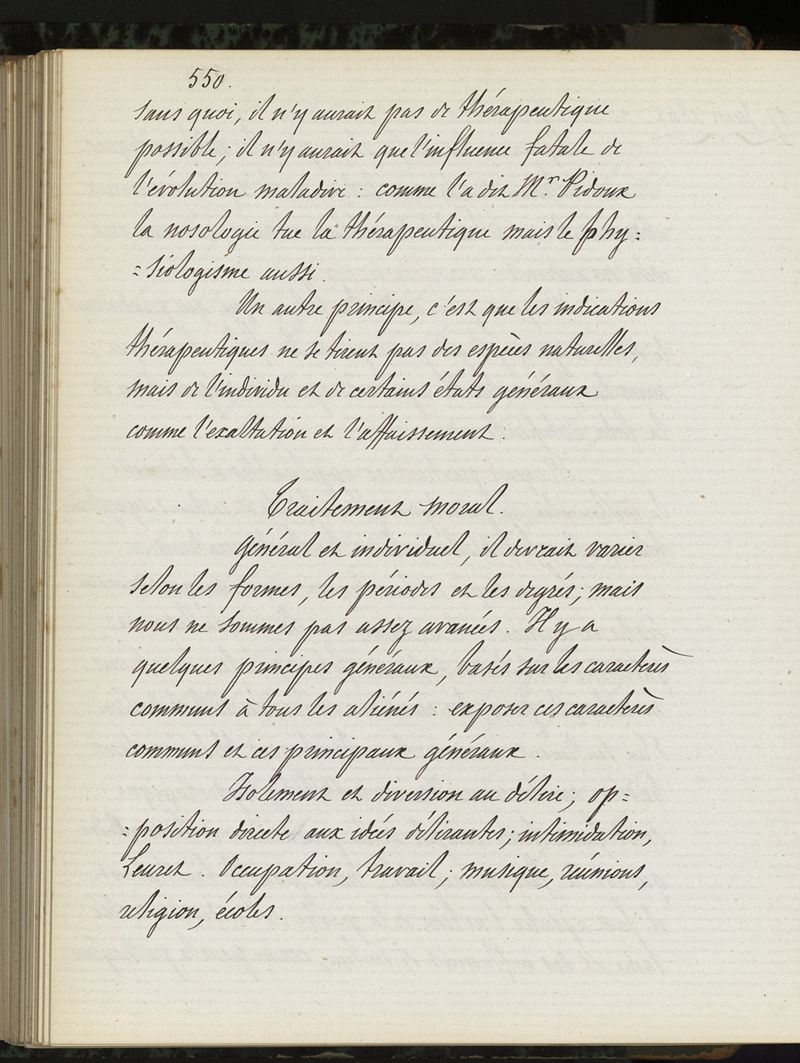 550.
sans quoi, il n'y aurait pas de thérapeutique
possible; il n'y aurait que l'influence fatale de
l'évolution maladive : comme l'a dit Mr. Pidoux
la nosologie tue la thérapeutique mais le phy=
=siologisme aussi.
Un autre principe, c'est que les indications
thérapeutiques ne se tirent pas des espèces naturelles,
mais de l'individu et de certains états généraux
comme l'exaltation et l'affaissement.
Traitement moral.
Général et individuel, il devrait varier
selon les formes, les périodes et les degrés; mais
nous ne sommes pas assez avancés. Il y a
quelques principes généraux, basés sur les caractères
communs à tous les aliénés : exposer ces caractères
communs et ces principaux généraux.
Isolement et diversion au délire; op=
=position directe aux idées délirantes; intimidation,
Leuret. Occupation, travail; musique, réunions,
religion, écoles.